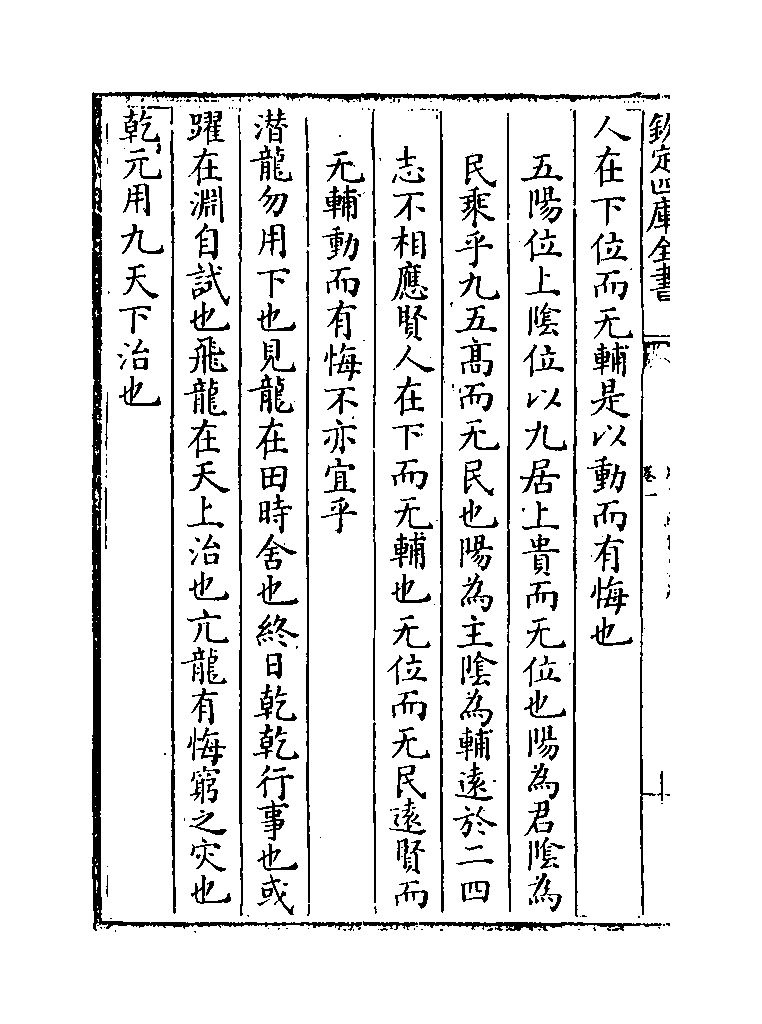 欽定四庫全書
卷一
人在下位而无輔是以動而有悔也
五陽位上陰位以九居上貴而无位也陽為君陰為
民乘乎九五髙而无民也陽為主陰為輔遠於二四
志不相應賢人在下而无輔也无位而无民遠賢而
无輔動而有悔不亦宜乎
潛龍勿用下也見龍在田時舍也終日乾乾行事也或
躍在淵自試也飛龍在天上治也亢龍有悔窮之灾也
乾元用九天下治也